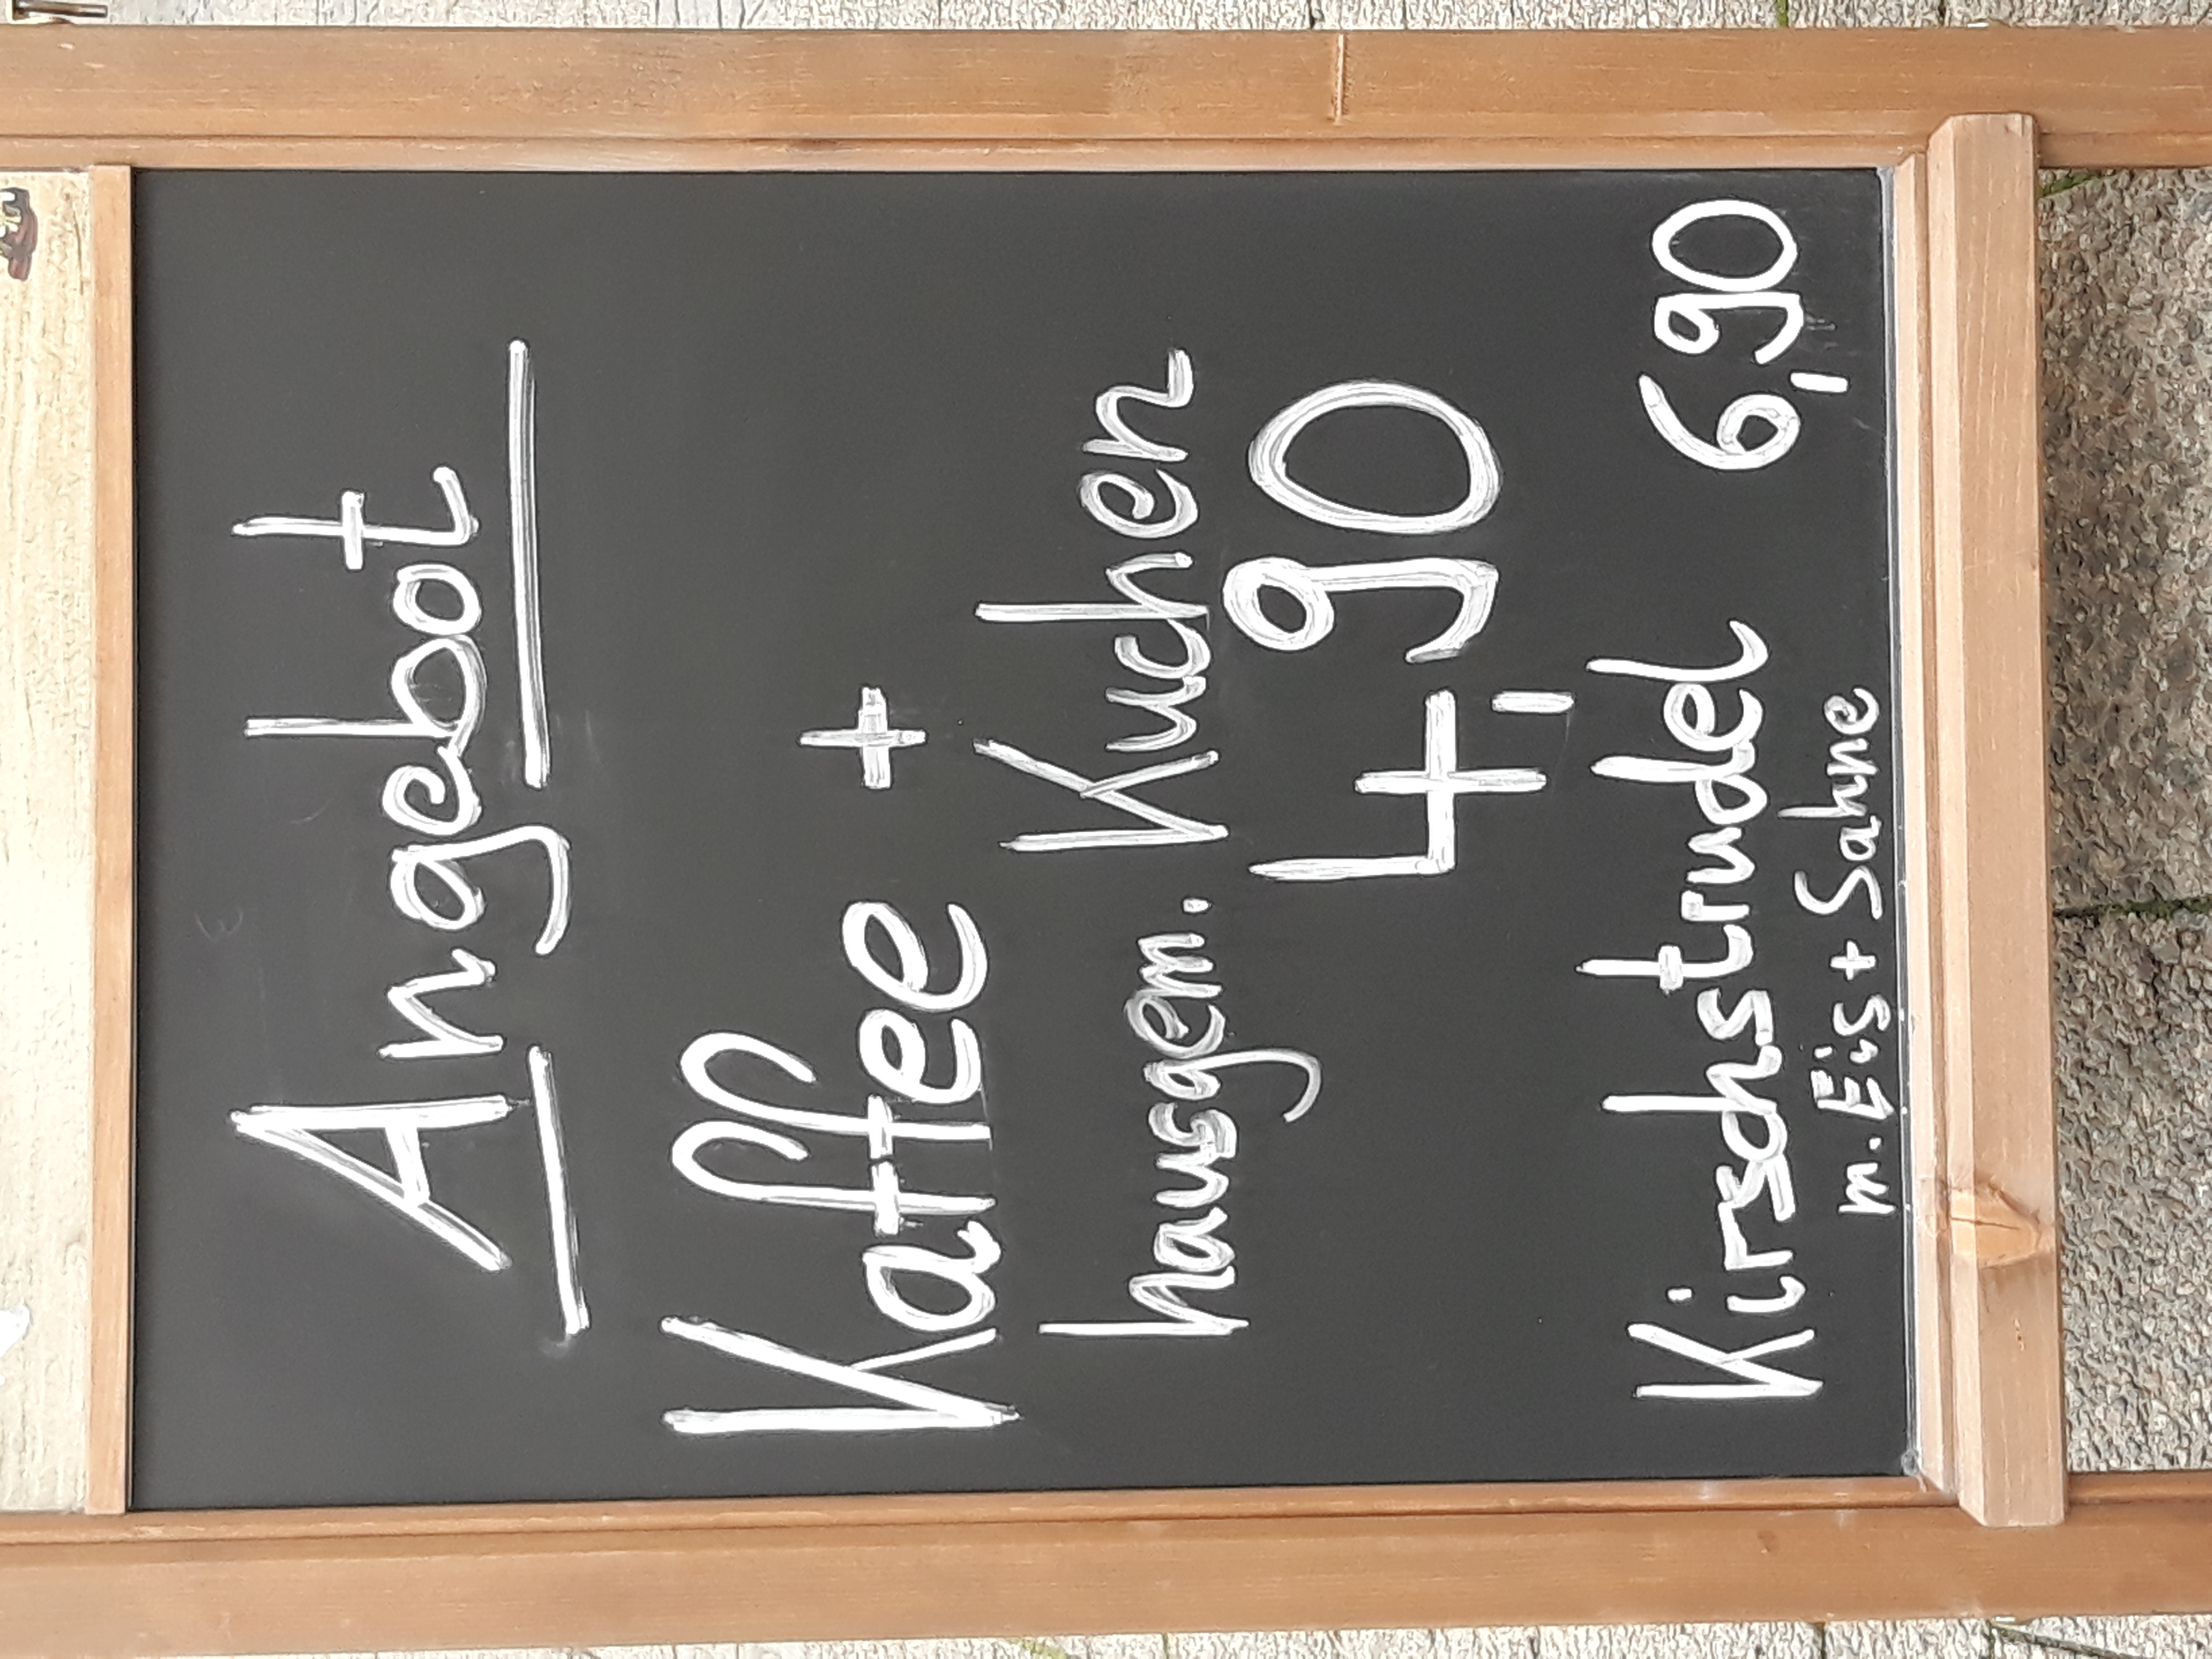 Angebot
Kaffee +
hausgem. Kuchen
4,90
Kirschstrudel 6,90
m. Eis + Sahne